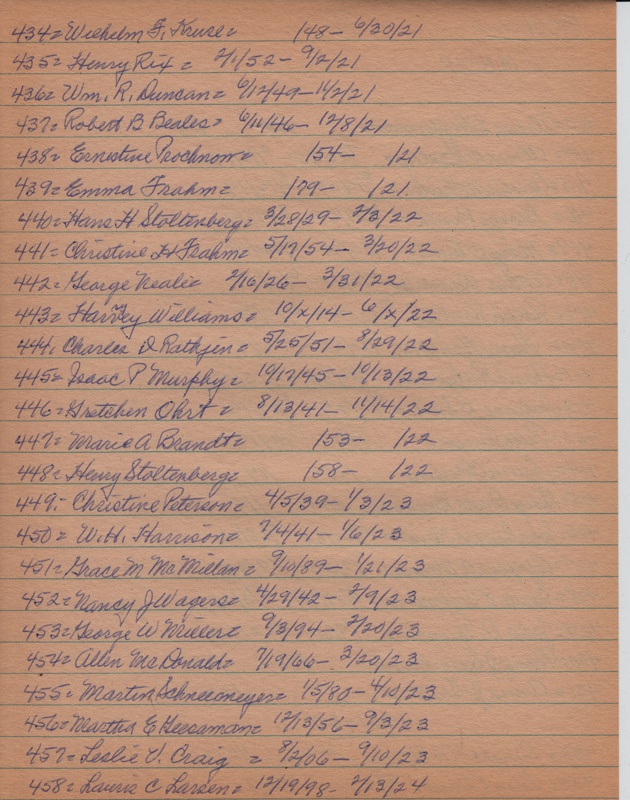 434= Wilhelm F. Kruse= /48- 6/30/21
435= Henry Rix = 2/1/52- 9/2/21
436= Wm. R. Duncan= 6/12/49-11/2/21
437= Robert B Beales= 6/11/46- 12/8/21
438= Ernestine Prochnow= /54- /21
439= Emma Frahm= /79- /21.
440= Hans H Stoltenberg= 3/28/29- 2/3/22
441= Christine H Frahm= 5/19/54- 3/20/22
442= George Nealis= 2/16/26- 3/31/22
443= Harvey Williams= 10/x/14- 6/x/22
444. Charles D Rathjin= 5/25/51- 8/29/22
445= Isaac P Murphy= 10/17/45- 10/13/22
446= Gretchen Ohrt= 8/13/41- 11/14/22
447= Marie A Brandt= /53- /22
448= Henry Stoltenberg= /58- /22
449- Christine Peterson= 4/5/39- 1/3/23
450= W.H. Harrison= 7/4/41- 1/6/23
451= Grace M McMillan= 9/10/89- 1/21/23
452= Nancy J Wagers= 4/29/42- 2/9/23
453= George W Miller= 9/3/94- 2/20/23
454= Allen McDonald= 7/19/66- 3/20/23
455= Martin Schneemeyer= 1/5/80- 4/10/23
456= Martha E Geesaman= 12/13/56- 9/3/23
457= Leslie V. Craig = 8/2/06- 9/10/23
458= Lauris C Larsen= 12/19/98- 2/13/24